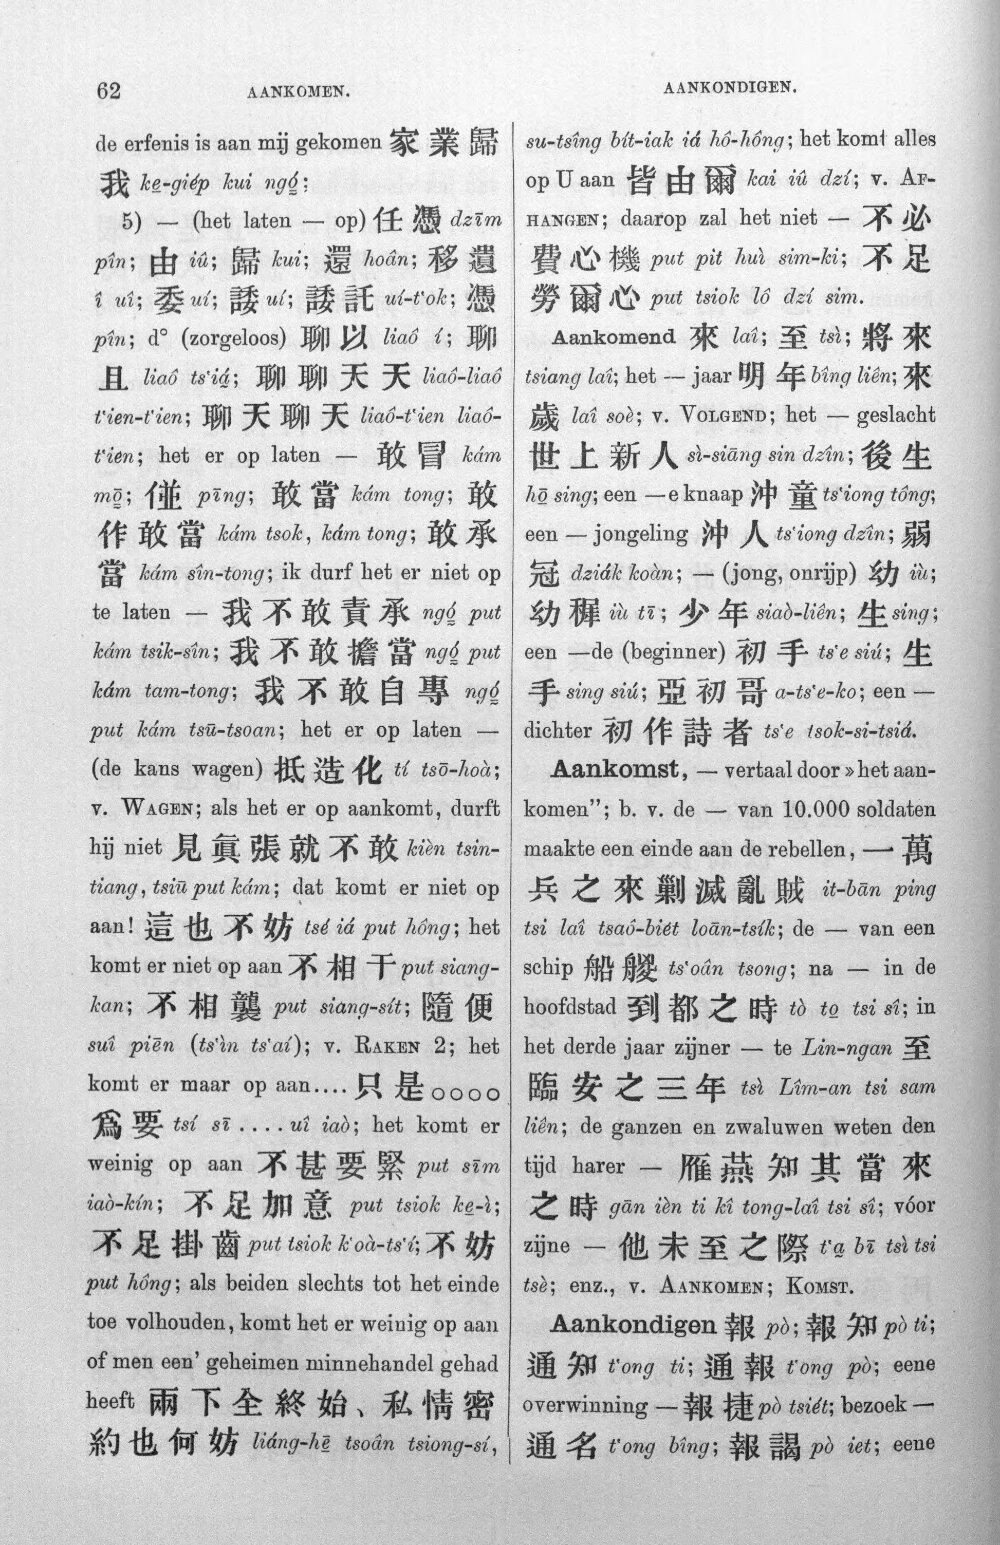 62
AANKOMEN.
AANKONDIGEN.
de erfenis is aan mij gekomen 家業歸
我 ke̤-giép kui ngó̤;
5) — (het laten — op) 任憑 dzīm
pîn; 由 iû; 歸 kui; 還 hoân; 移遺
î uî; 委 uí; 諉 uí; 諉託 uí-t‘ok; 憑
pîn; d° (zorgeloos) 聊以 liaô í; 聊
且 liaô ts‘iá̤; 聊聊天天 liaô-liaô
t‘ien-t‘ien; 聊天聊天 liaô-t‘ien liaô-
t‘ien; het er op laten — 敢冒 kám
mō̤; 倂 pīng; 敢當 kám tong; 敢
作敢當 kám tsok, kám tong; 敢承
當 kám sîn-tong; ik durf het er niet op
te laten — 我不敢責承 ngó̤ put
kám tsik-sîn; 我不敢擔當 ngó̤ put
kám tam-tong; 我不敢自專 ngó̤
put kám tsū-tsoan; het er op laten —
(de kans wagen) 抵造化 tí tsō-hoà;
v. WAGEN; als het er op aankomt, durft
hij niet 見眞張就不敢 kièn tsin-
tiang, tsiū put kám; dat komt er niet op
aan! 這也不妨 tsé iá put hông; het
komt er niet op aan 不相干 put siang-
kan; 不相襲 put siang-sít; 隨便
suî piēn (ts‘ìn ts‘aí); v. RAKEN 2; het
komt er maar op aan.... 只是○○○○
爲要 tsí sī .... uî iaò; het komt er
weinig op aan 不甚要緊 put sīm
iaò-kín; 不足加意 put tsiok ke̤-ì;
不足掛齒 put tsiok k‘oà-ts‘í; 不妨
put hông; als beiden slechts tot het einde
toe volhouden, komt het er weinig op aan
of men een’ geheimen minnehandel gehad
heeft 兩下全終始、私情密
約也何妨 liáng-hē̤ tsoân tsiong-sí,
su-tsîng bít-iak iá hô-hông; het komt alles
op U aan 皆由爾 kai iû dzí; v. AF-
HANGEN; daarop zal het niet — 不必
費心機 put pit huì sim-ki; 不足
勞爾心 put tsiok lô dzí sim.
Aankomend 來 laî; 至 tsì; 將來
tsiang laî; het — jaar 明年 bîng liên; 來
歲 laî soè; v. VOLGEND; het — geslacht
世上新人 sì-siāng sin dzîn; 後生
hō̤ sing; een —e knaap 沖童 ts‘iong tông;
een — jongeling 沖人 ts‘iong dzîn; 弱
冠 dziák koàn; — (jong, onrijp) 幼 iù;
幼稺 iù tī; 少年 siaò-liên; 生 sing;
een —de (beginner) 初手 ts‘e siú; 生
手 sing siú; 亞初哥 a-ts‘e-ko; een —
dichter 初作詩者 ts‘e tsok-si-tsiá.
Aankomst, — vertaal door »het aan-
komen”; b. v. de — van 10.000 soldaten
maakte een einde aan de rebellen, 一萬
兵之來剿滅亂賊 it-bān ping
tsi laî tsaó-biét loān-tsík; de — van een
schip 船艐 ts‘oân tsong; na — in de
hoofdstad 到都之時 tò to̤ tsi sî; in
het derde jaar zijner — te Lin-ngan 至
臨安之三年 tsì Lîm-an tsi sam
liên; de ganzen en zwaluwen weten den
tijd harer — 雁燕知其當來
之時 gān ièn ti kî tong-laî tsi sî; vóor
zijne — 他未至之際 t‘a̤ bī tsì tsi
tsè; enz., v. AANKOMEN; KOMST.
Aankondigen 報 pò; 報知 pò ti;
通知 t‘ong ti; 通報 t‘ong pò; eene
overwinning — 報捷 pò tsiét; bezoek —
通名 t‘ong bîng; 報謁 pò iet; eene